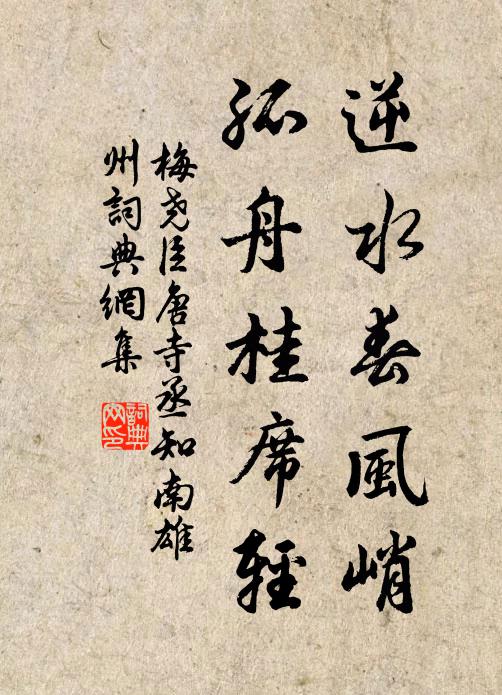 逆水春風峭
孤舟桂席輕
梅堯臣唐寺丞知南雄
州詞典網集
詞典網印